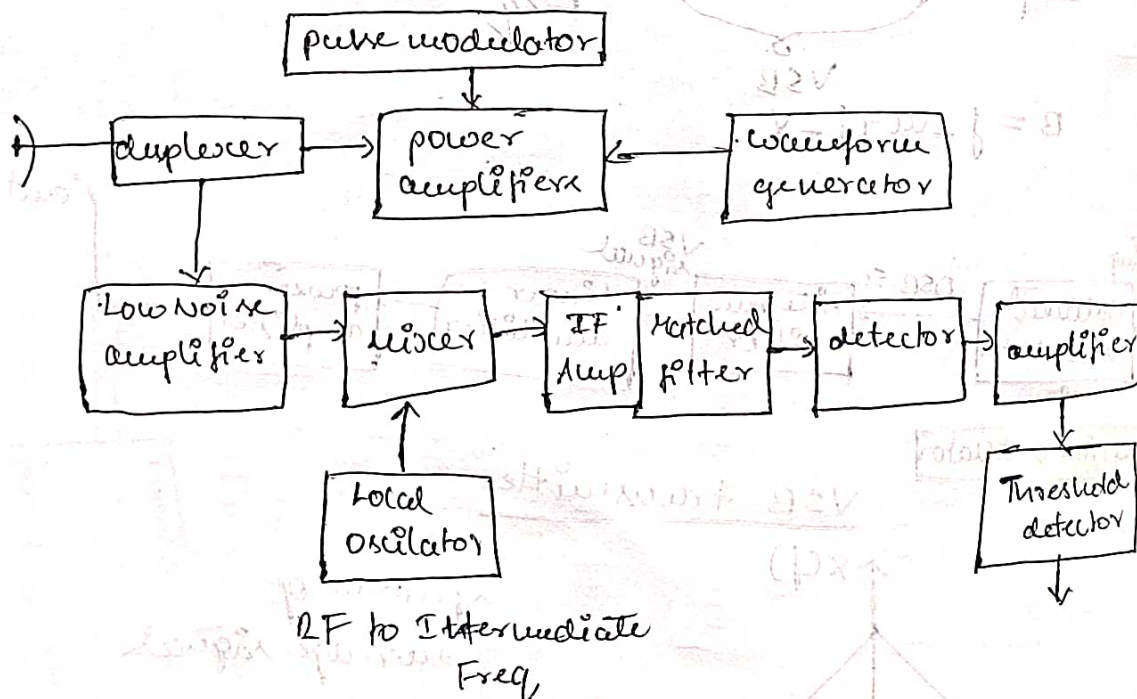 pulse modulator
duplexer
power
amplifiers
waveform
generator
Low Noise
amplifier
mixer
IF
Amp
Matched
filter
detector
amplifier
Local
Oscilator
Threshold
detector
RF to Intermediate
Freq
VSB
VSB
signal
DSB
VSB transmitte
x(f)